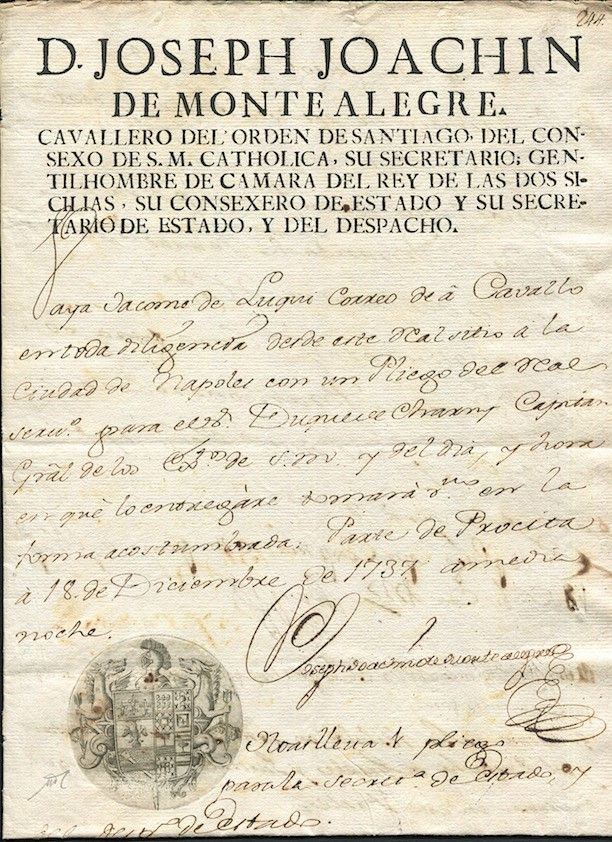 244.
D. JOSEPH JOACHIN
DE MONTEALEGRE.
CAVALLERO DEL'ORDEN DE SANTIAGO, DEL CON-
SEXO DE S. M. CATHOLICA, SU SECRETARIO; GEN-
TILHOMBRE DE CAMARA DEL REY DE LAS DOS SI-
CILIAS, SU CONSEXERO DE ESTADO Y SU SECRE-
TARIO DE ESTADO, Y DEL DESPACHO.
Vaya Jacome de Luqui Correo de â Cavallo
en toda diligencia desde este Real sitio à la
Ciudad de Napoles con un Pliego del Real
serv.º para el S.r Duque de Charny Capitan
Gral de los Ex.tos de S. M. y del dia, y hora
en què lo entregàre tomarà r.vo en la
forma acostumbrada. Parte de Procita
à 18. de Diciembre de 1737 a media
noche.
Joseph Joachin de Montealegre
pliego
para la secret.a de Estado, y
de Estado.